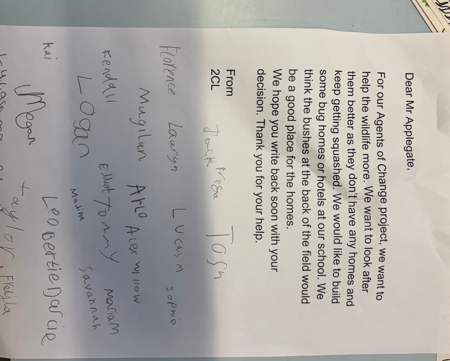 Dear Mr Applegate,
For our Agents of Change project, we want to
help the wildlife more. We want to look after
them better as they don't have any homes and
keep getting squashed. We would like to build
some bug homes or hotels at our school. We
think the bushes at the back of the field would
be a good place for the homes.
We hope you write back soon with your
decision. Thank you for your help.
From
2CL
Jack Freya Tosh
Florence Lauryn Lucas M Sophie
Mugilan Arlo
Kendall Elliot Tommy Mariam
Logan Maxim Savannah
Kai
Megan Leo Bertie Darcie
Taylor, Flayla